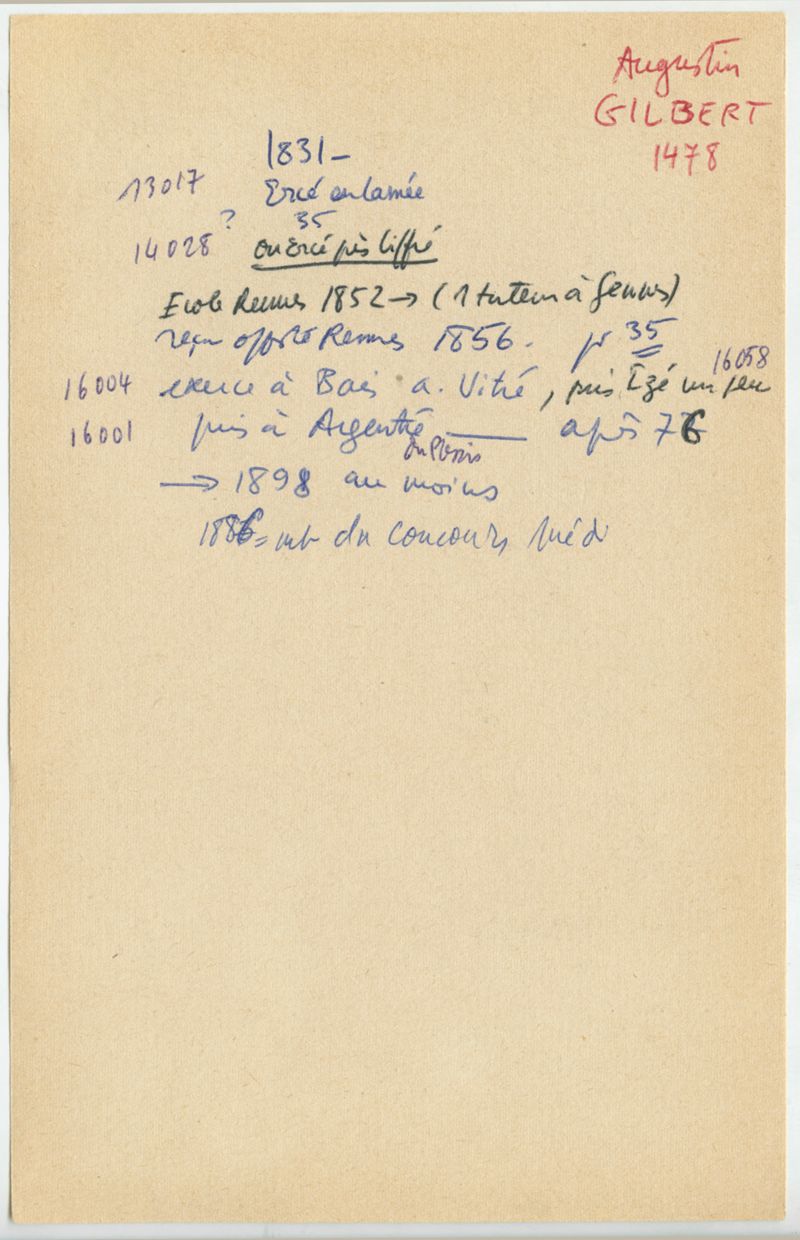 Augustin
GILBERT
1478
1831 –
13017 Ercé en Lamée
? 35
14028 ou Ercé près Liffré
Ecole Rennes 1852 → (1 tuteur à Gennes)
reçu off. santé Rennes 1856. pr 35
16058
16004 exerce à Bais a. Vitré, puis Izé un peu
16001 puis à Argentré ——— après 76
du Plessis
→ 1898 au moins
1886 = mb du concours Méd